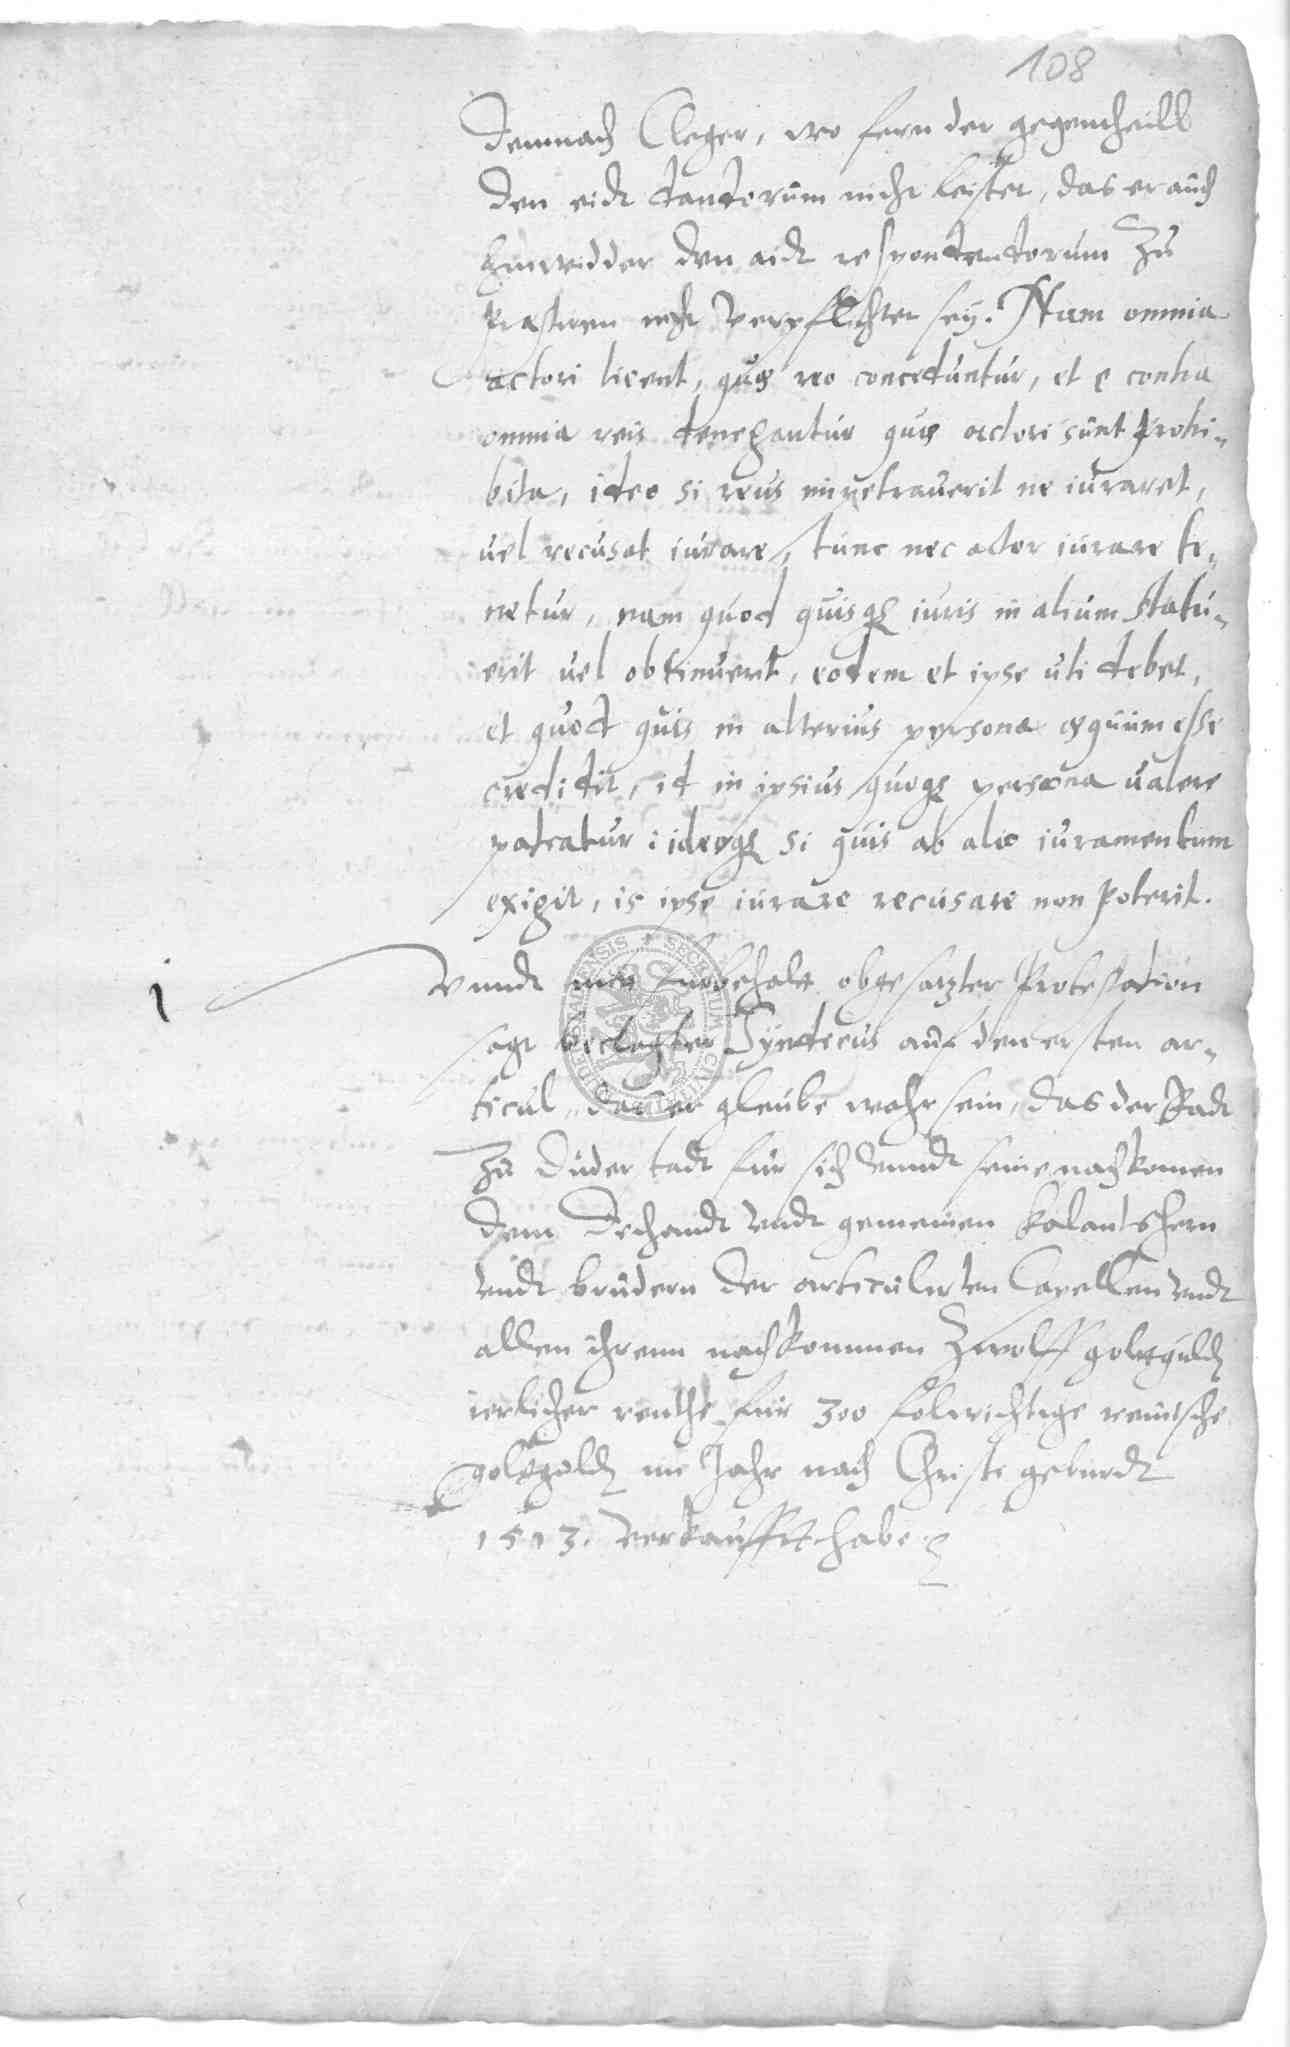 108
Demnach Cleger, wo fern der gegentheill
den eidt dandorum nicht leistet, das er auch
hinwidder den aidt respondendorum zu
prastiren nicht verpflichtet sey. Nam omnia
actori licent, quę reo conceduntur, et e contra
omnia reis denegantur quę actori sunt prohi-
bita, ideo si reus impetrauerit ne iuraret,
uel recusat iurare, tunc nec actor iurare te-
netur, nam quod quisq; iuris in alium statu-
erit uel obtinuerit, eodem et ipse uti debet,
et quod quis in alterius persona ęquum esse
credidit, id in ipsius quoq; persona ualere
patiatur: ideoq; si quis ab alio iuramentum
exigit, is ipse iurare recusare non poterit.
1
Vnndt mit furbehalt obgesatzter Protestation
sagt beclagter Syndicus auf den ersten ar-
ticul, das er gleube wahr sein, das der Radt
zu Duderstadt fur sich vnndt seine nachkomen
dem Dechandt vndt gemeinen kalantshern
vndt brudern der articulirten Capellen vndt
allen ihrenn nachkommen zwolff goltguld
ierlicher renthe fur 300 folwichtige reinische
goltguld im Jahr nach Christi geburdt
1513. verkaufft habe.
SIGILLUM SECRETUM CIVITATIS